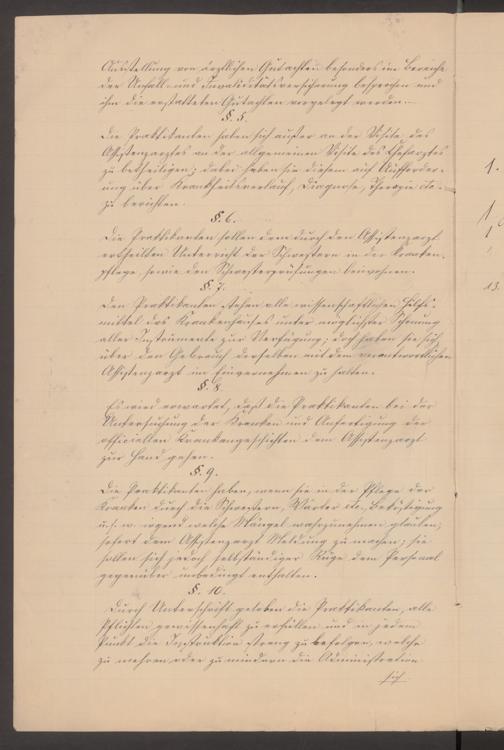 Ausstellung von ärztlichen Gutachten besonders im Bereiche
der Unfall- und Invaliditätsversicherung besprochen und
ihm die erstatteten Gutachten vorgelegt werden.
§. 5.
Die Praktikanten haben sich außer an der Visite des
Assistenzarztes an der allgemeinen Visite des Chefarztes
zu betheiligen; dabei haben sie diesem auf Aufforder-
ung über Krankheitsverlauf, Diagnose, Therapie etc.
zu berichten.
§. 6.
Die Praktikanten sollen dem durch den Assistenzarzt
ertheilten Unterricht der Schwestern in der Kranken-
pflege, sowie den Schwesterprüfungen beiwohnen.
§. 7.
Den Praktikanten stehen alle wissenschaftlichen Hilfs-
mittel des Krankenhauses unter möglichster Schonung
aller Instrumente zur Verfügung; doch haben sie sich
über den Gebrauch derselben mit dem verantwortlichen
Assistenzarzt ins Einvernehmen zu halten.
§. 8.
Es wird erwartet, daß die Praktikanten bei der
Untersuchung der Kranken und Anfertigung der
officiellen Krankengeschichten dem Assistenzarzt
zur Hand gehen.
§. 9.
Die Praktikanten haben, wenn sie in der Pflege der
Kranken durch die Schwestern, Wärter etc. Beköstigung
u.s.w. irgend welche Mängel wahrzunehmen glauben,
sofort dem Assistenzarzt Meldung zu machen; sie
sollen sich jedoch selbständiger Rüge dem Personal
gegenüber unbedingt enthalten.
§. 10.
Durch Unterschrift geloben die Praktikanten, alle
Pflichten gewissenhaft zu erfüllen und in jedem
Punkt die Instruktion streng zu befolgen, welche
zu mehren oder zu mindern die Administration
sich
1.
13.